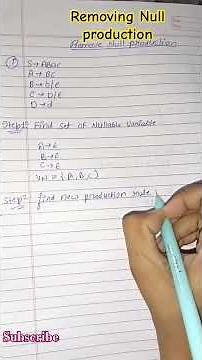 Removing Null
production
Remove Null production
① S→ABaC
A→BC
B→b/ε
C→D/ε
D→d
Step1 Find set of Nullable Variable
A→ε
B→ε
C→ε
VN = {A,B,C}
Step2 find new production rule
Subscribe